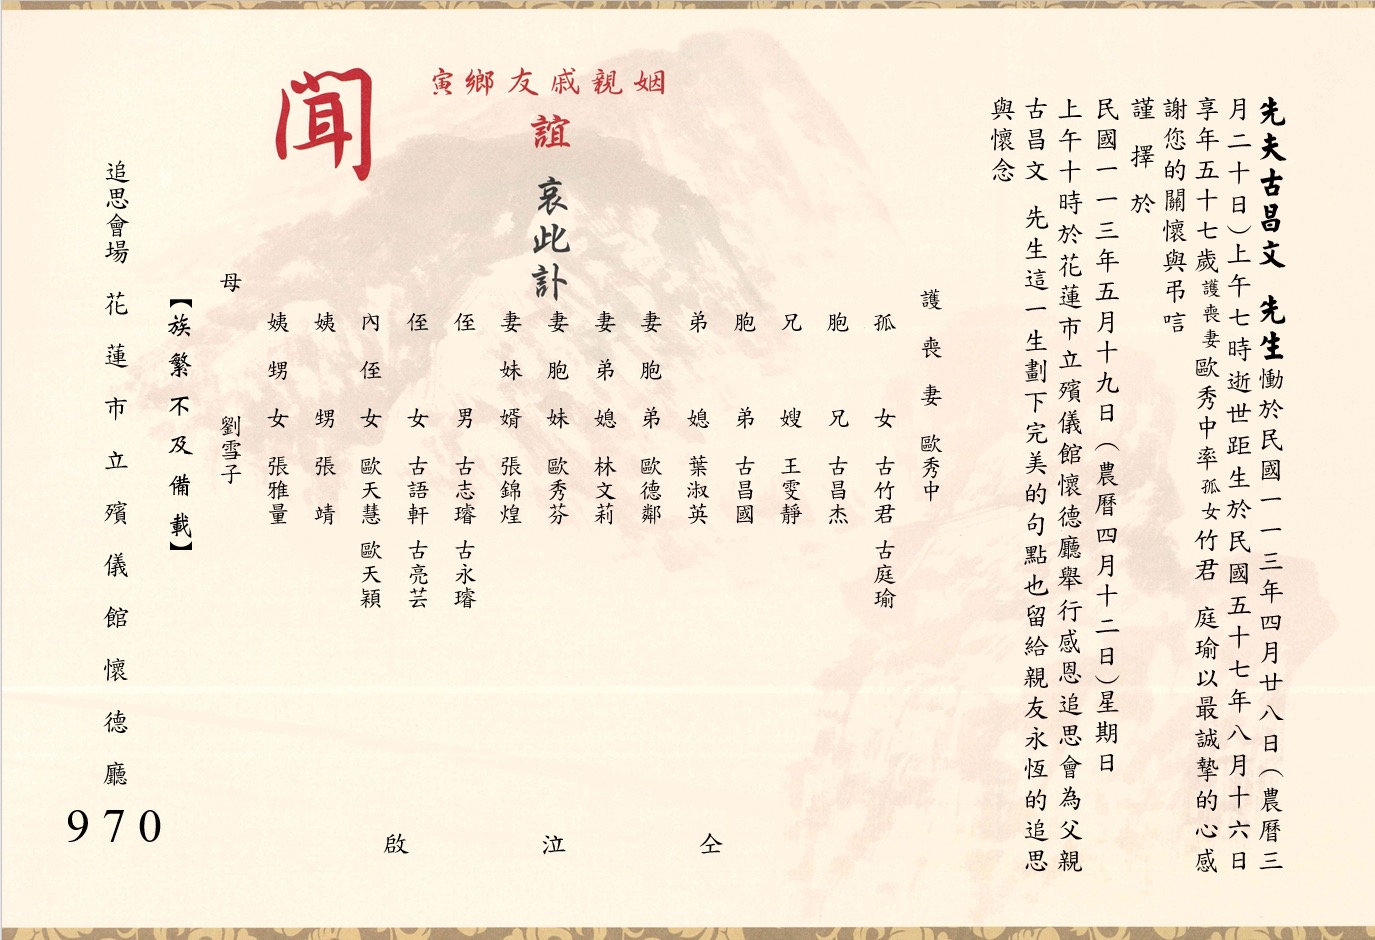 先夫古昌文 先生慟於民國一一三年四月廿八日(農曆三
月二十日)上午七時逝世距生於民國五十七年八月十六日
享年五十七歲護喪妻歐秀中率孤女竹君 庭瑜以最誠摯的心感
謝您的關懷與弔唁
謹擇於
民國一一三年五月十九日(農曆四月十二日)星期日
上午十時於花蓮市立殯儀館懷德廳舉行感恩追思會為父親
古昌文 先生這一生劃下完美的句點也留給親友永恆的追思
與懷念
護喪妻 歐秀中
孤女 古竹君 古庭瑜
胞兄 古昌杰
兄嫂 王雯靜
胞弟 古昌國
弟媳 葉淑英
妻胞弟 歐德鄰
妻弟媳 林文莉
妻胞妹 歐秀芬
妻妹婿 張錦煌
侄男 古志璿 古永璿
侄女 古語軒 古亮芸
內侄女 歐天慧 歐天穎
姨甥 張靖
姨甥女 張雅量
母 劉雪子
仝泣啟
姻親戚友鄉寅
誼
哀此訃
聞
【族繁不及備載】
追思會場 花蓮市立殯儀館懷德廳
970